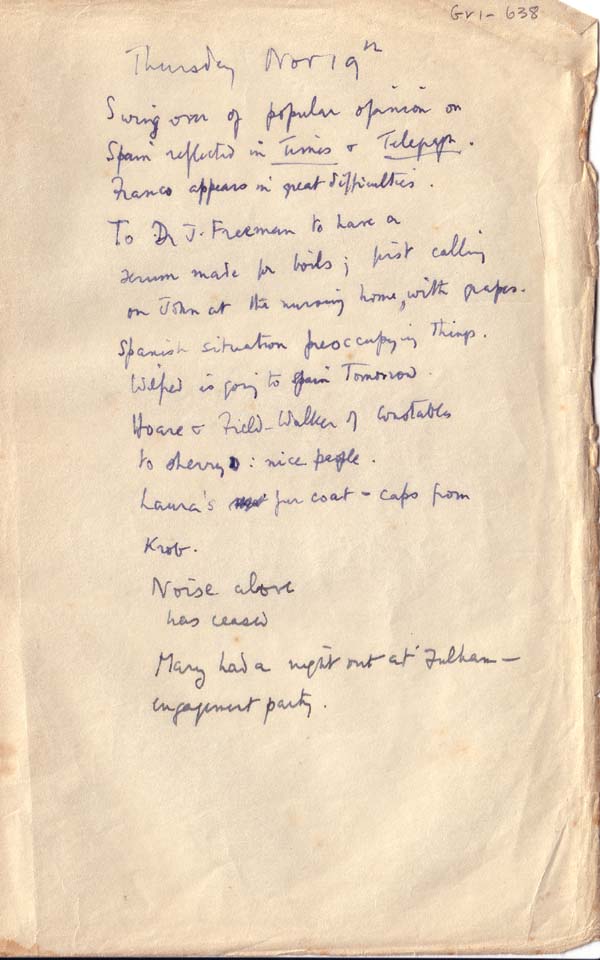 Gv1- 638
Thursday Nov 19th
Swing over of popular opinion on
Spain reflected in Times & Telegraph.
Franco appears in great difficulties.
To Dr J. Freeman to have a
serum made for boils; first calling
on John at the nursing home, with grapes.
Spanish situation preoccupying things.
Wilfred is going to Spain Tomorrow.
Hoare & Field-Walker of Constables
to sherry: nice people.
Laura's fur coat - caps from
Krob.
Noise above
has ceased
Mary had a night out at Fulham -
engagement party.